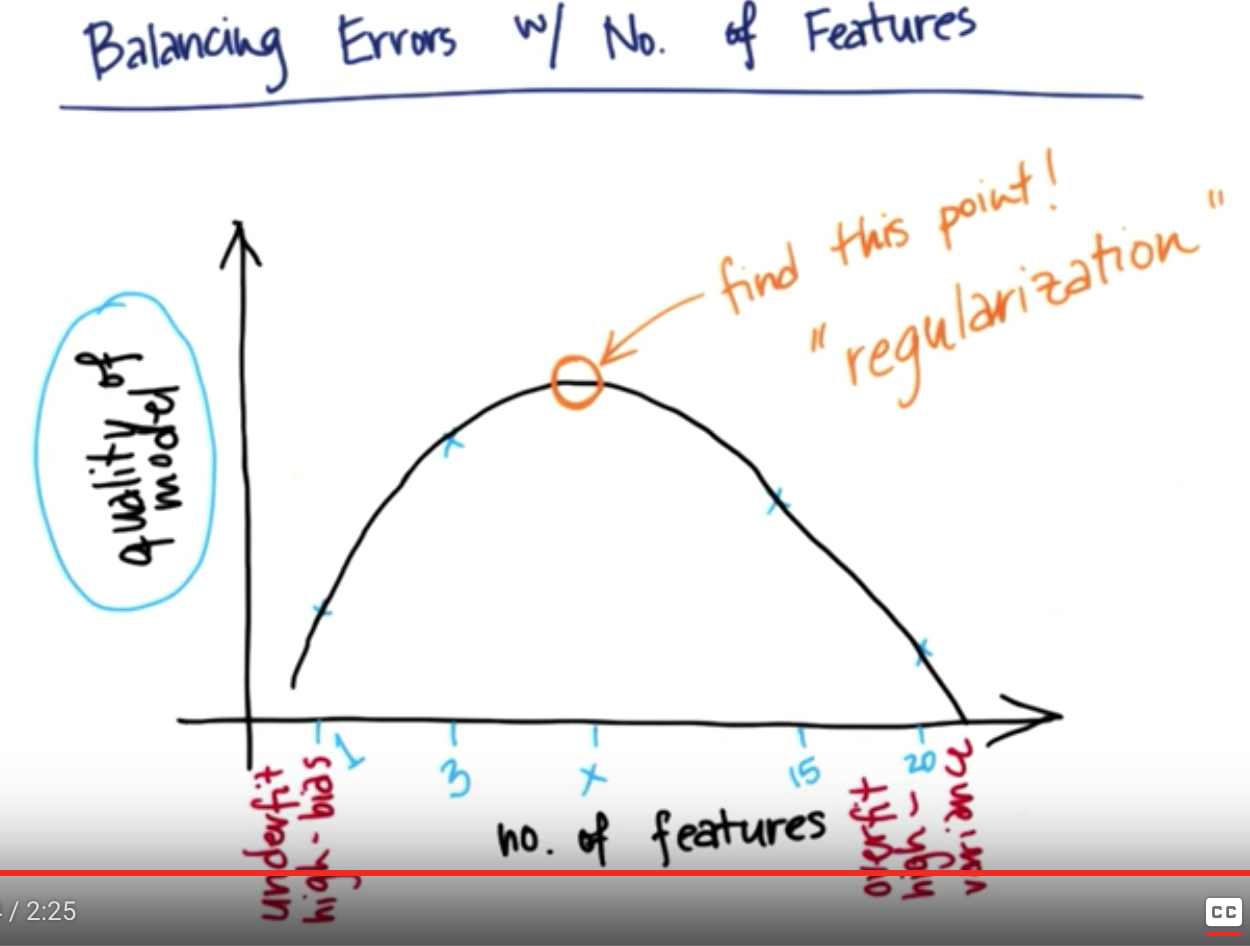 Balancing Errors w/ No. of Features
find this point!
"regularization"
quality of
model
1
3
x
15
20
underfit
high-bias
no. of features
overfit
high-
variance
/ 2:25
CC